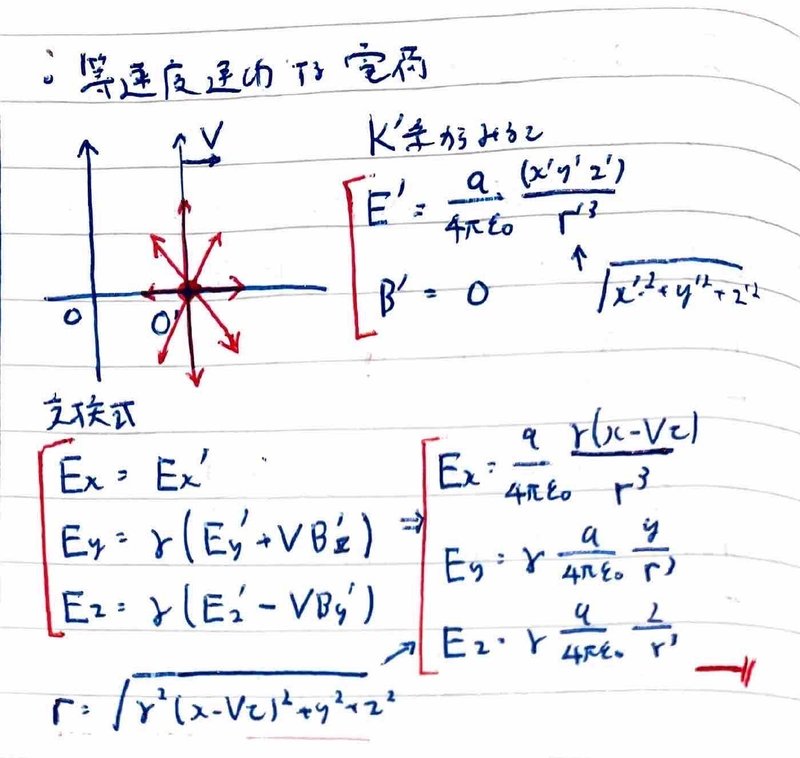 ∴ 等速度運動する電荷
V
O
O'
K'系からみると
E' = q/4πε₀ (x' y' z')/r'³
↑
B' = 0
√x'²+y'²+z'²
変換式
Ex = Ex'
Ey = γ(Ey' + VBz')
Ez = γ(Ez' - VBy')
⇒
Ex = q/4πε₀ γ(x-Vt)/r³
Ey = γ q/4πε₀ y/r³
Ez = γ q/4πε₀ z/r³
r = √γ²(x-Vt)²+y²+z²